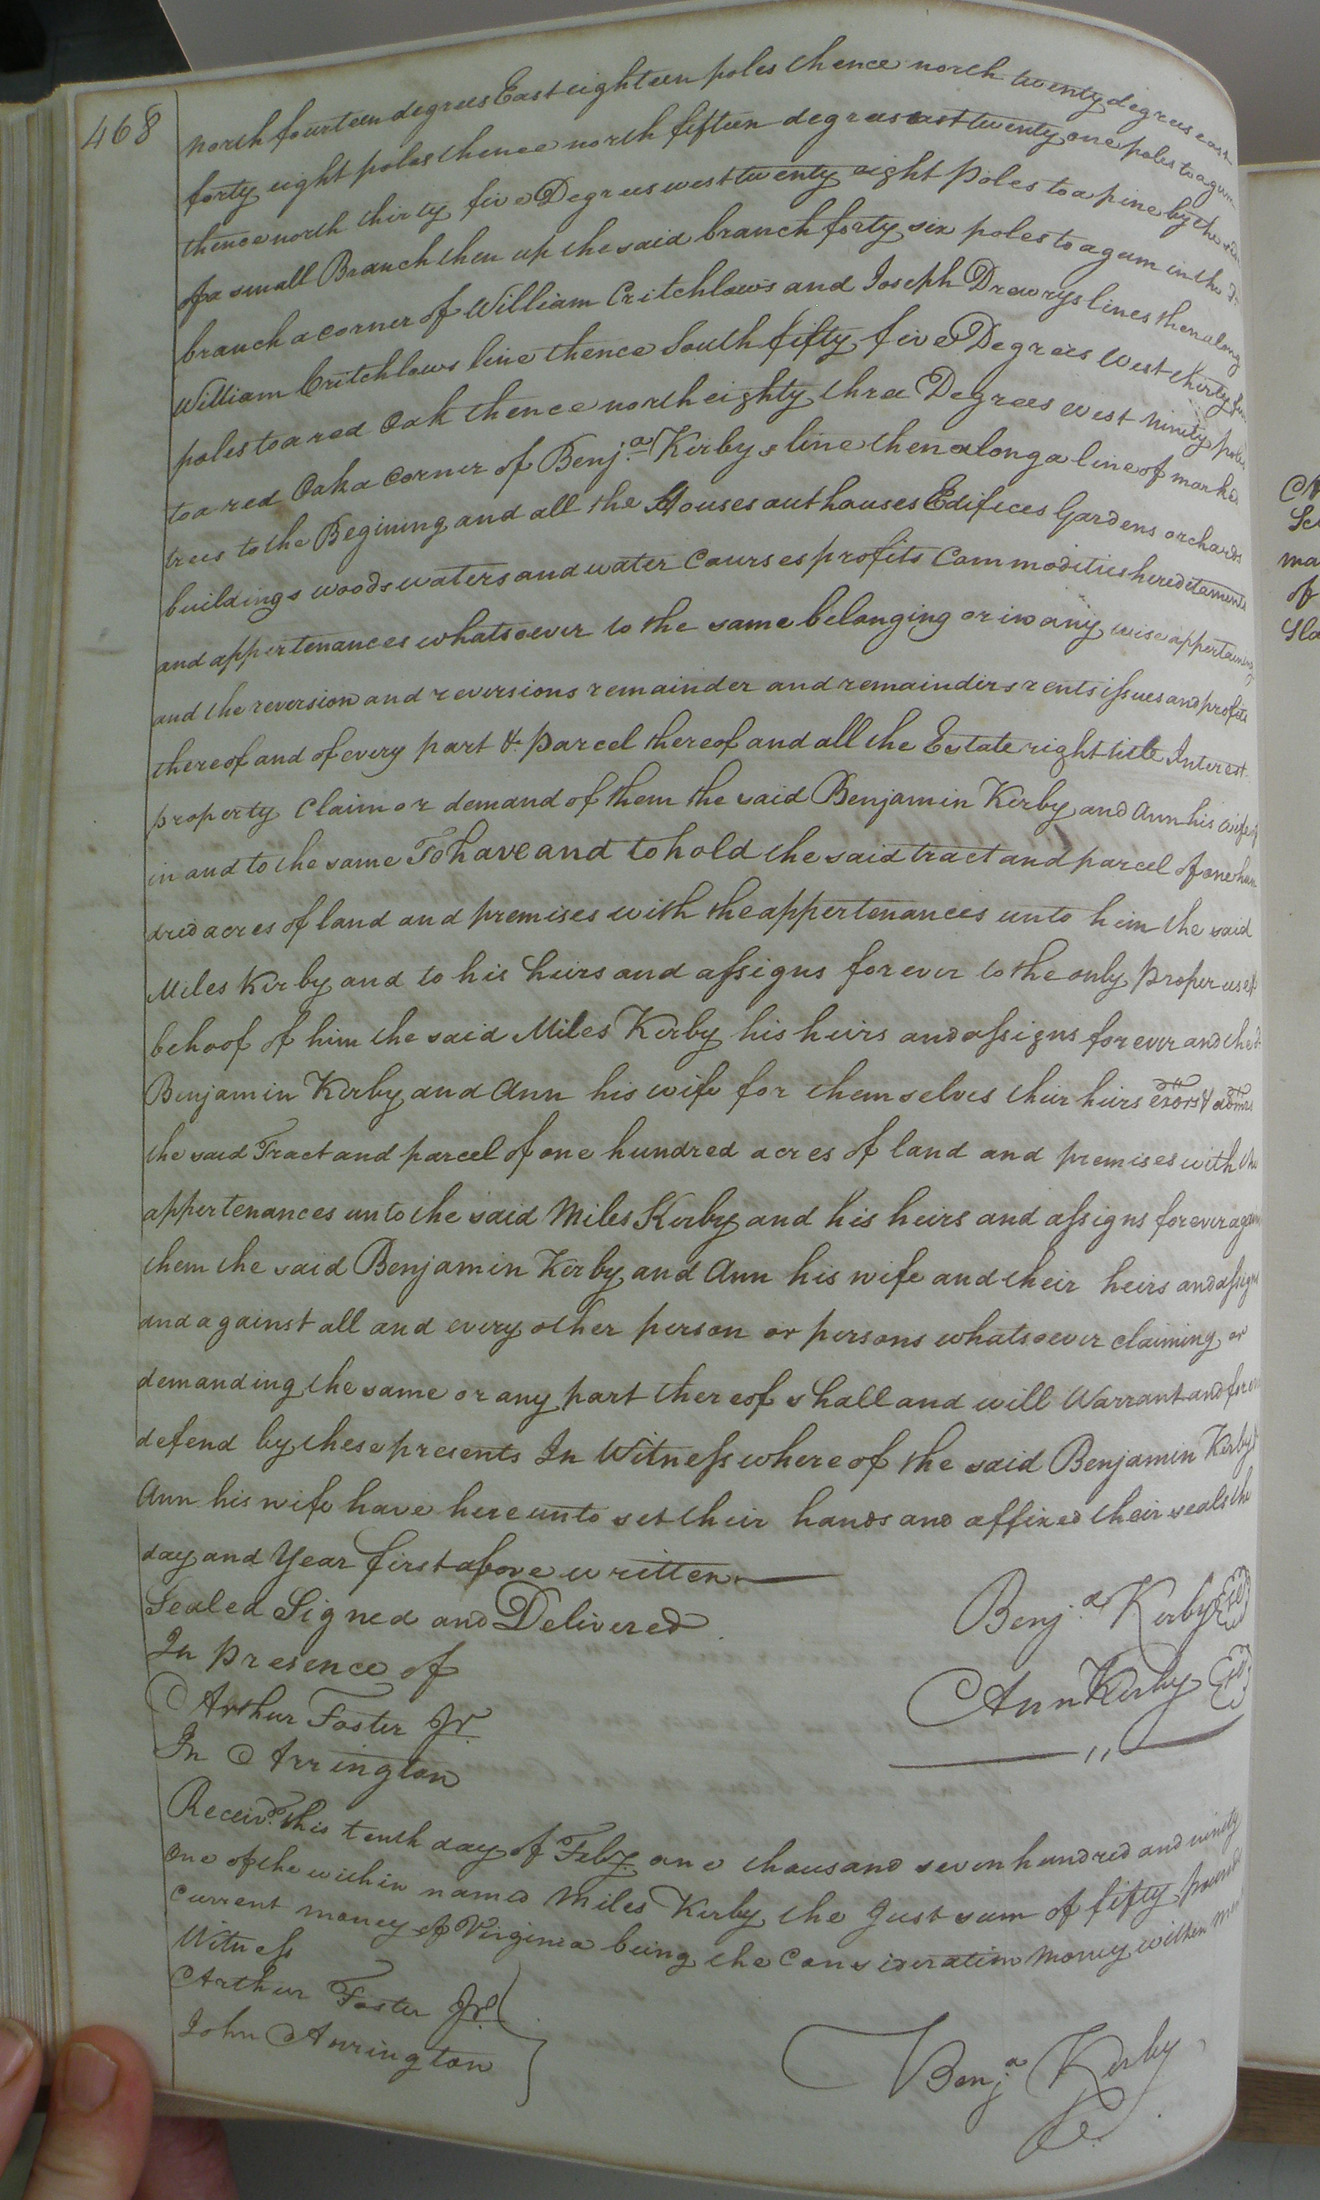 468
north fourteen degrees East eighteen poles thence north twenty degrees east
forty eight poles thence north fifteen degrees east twenty one poles to a gum
thence north thirty five Degrees west twenty eight Poles to a pine by the side
of a small Branch then up the said branch forty six poles to a gum in the sd
branch a corner of William Critchlows and Joseph Drewrys lines then along
William Critchlows line thence South fifty five Degrees West thirty four
poles to a red Oak thence north eighty three Degrees west Ninety poles
to a red Oak a corner of Benja. Kirbys line then along a line of marked
trees to the Begining and all the Houses outhouses Edifices Gardens orchards
buildings woods waters and water Courses profits Commodities hereditaments
and appertenances whatsoever to the same belonging or in any wise appertaining
and the reversion and reversions remainder and remainders rents issues and profits
thereof and of every part & parcel thereof and all the Estate right title Interest
property Claim or demand of them the said Benjamin Kirby and Ann his wife of
in and to the same To have and to hold the said tract and parcel of one hun
dred acres of land and premises with the appertenances unto him the said
Miles Kirby and to his heirs and assigns forever to the only proper use &
behoof of him the said Miles Kirby his heirs and assigns forever and the sd
Benjamin Kirby and Ann his wife for themselves their heirs exors & adms
the said Tract and parcel of one hundred acres of land and premises with the
appertenances unto the said Miles Kirby and his heirs and assigns forever against
them the said Benjamin Kirby and Ann his wife and their heirs and assigns
and against all and every other person or persons whatsoever claiming or
demanding the same or any part thereof shall and will Warrant and forever
defend by these presents In Witness whereof the said Benjamin Kirby &
Ann his wife have hereunto set their hands and affixed their seals the
day and Year first above written
Sealed Signed and Delivered
In presence of
Arthur Foster Jr.
Jn Arrington
Benja. Kirby
Ann Kirby
Receivd. this tenth day of Feby. one thousand seven hundred and ninety
one of the within named Miles Kirby the Just sum of fifty pounds
Current money of Virginia being the Consideration Money within men
Witness
Arthur Foster Jr.
John Arrington
Benja Kirby